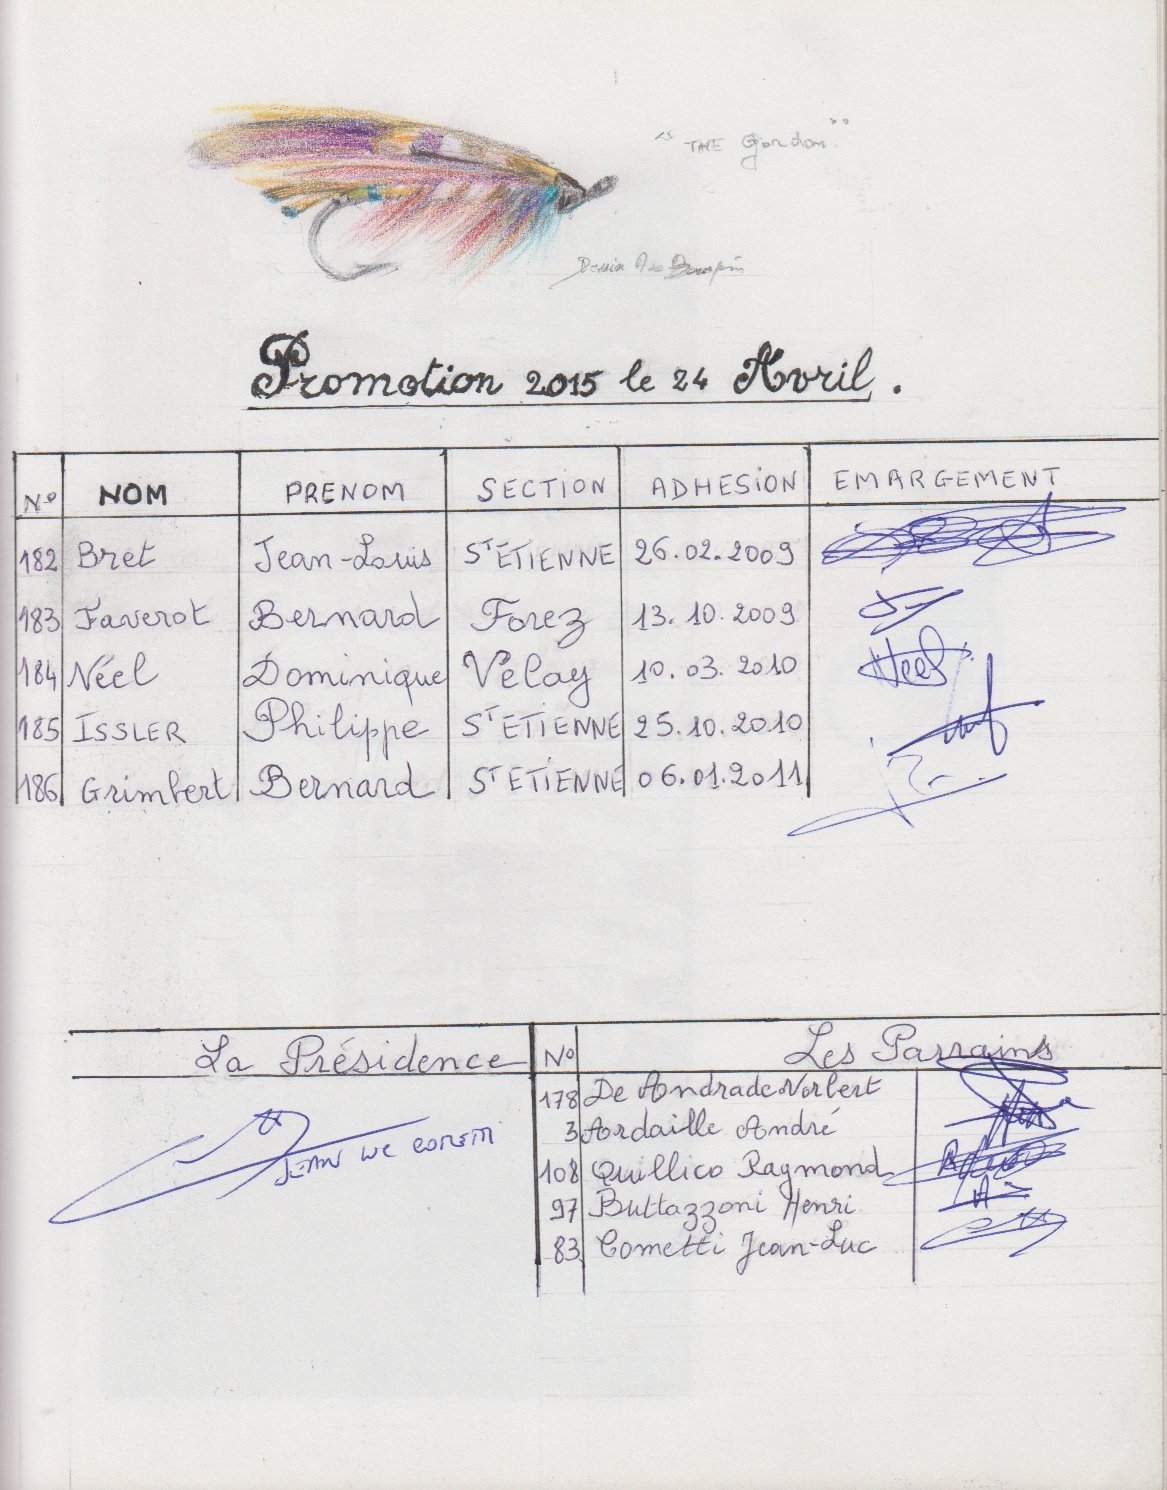 "THE Gordon"
Dessin
Promotion 2015 le 24 Avril.
N° NOM PRENOM SECTION ADHESION EMARGEMENT
182 Bret Jean-Louis ST ETIENNE 26.02.2009
183 Faverot Bernard Forez 13.10.2009
184 Néel Dominique Velay 10.03.2010 Neel
185 ISSLER Philippe ST ETIENNE 25.10.2010
186 Grimbert Bernard ST ETIENNE 06.01.2011
La Présidence N° Les Parrains
178 De Andrade Norbert
3 Ardaille André
JEAN LUC COMETTI
108 Quillico Raymond
97 Buttazzoni Henri
83 Cometti Jean-Luc